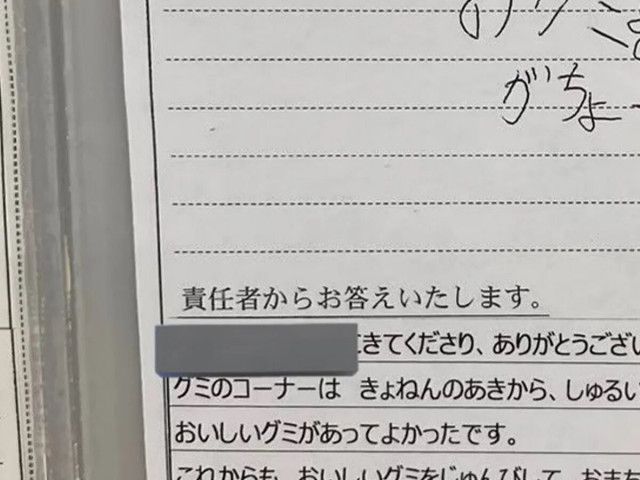 がちょ
責任者からお答えいたします。
きてくださり、ありがとうござい
グミのコーナーは　きょねんのあきから、しゅるい
おいしいグミがあってよかったです。
これからも、おいしいグミをじゅんびして、おまち